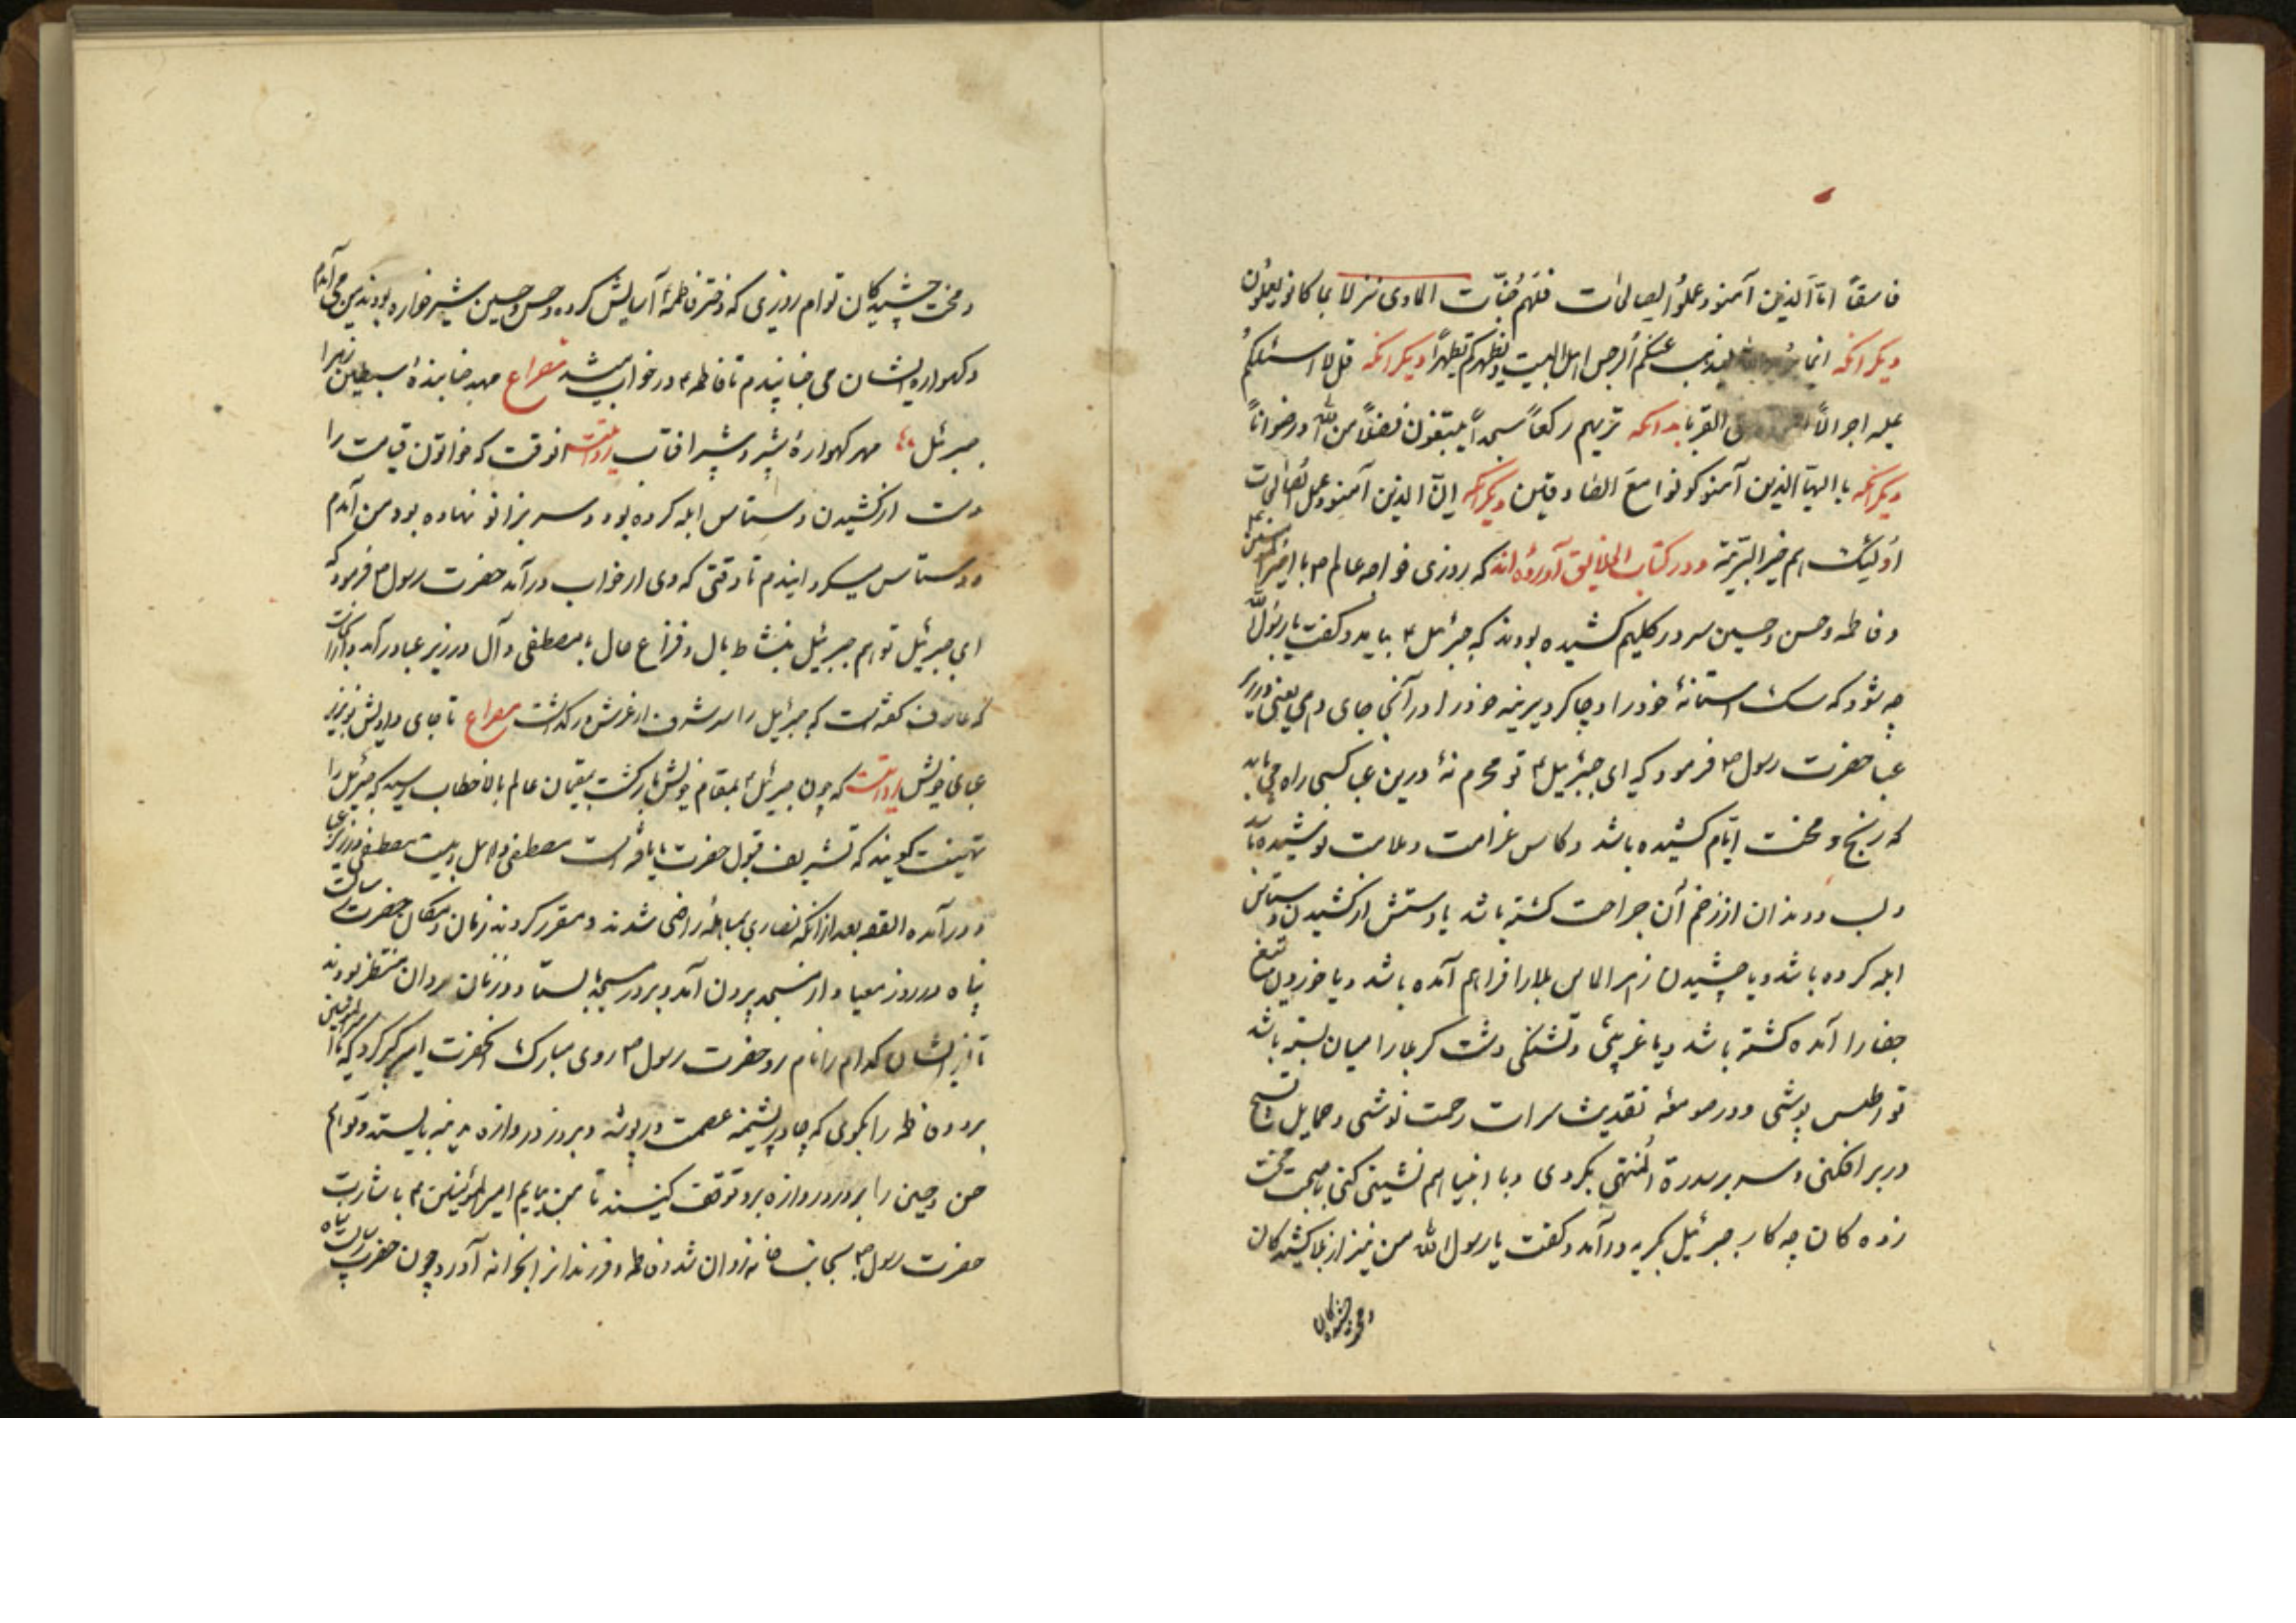 فاسقاً اناّ الذین آمنو و عملوُ الصالحات فلهم جنّات الماوی نزلا بما کانو یعلوُن
دیکر انکه انما یرید الله لیذهب عنکم الرجس اهل البیت و یطهرکم تطهراً دیکر انکه قل لا اسئلکم
علیه اجرا الاّ القربا بدانکه تریهم رکعاً سجداً یبتغون فضلاً من الله و رضواناً
دیکر انکه یا ایهاّ الذین آمنو کونوا معَ الصادقین دیکر انکه انّ الذین آمنو و عمل الصالحات
اوُلیئک هم خیر البّریة و در کتاب الخلایق آورده اند که روزی خواجه عالم ص با امیر المؤمنین ع
و فاطمه و حسن و حسین سر در کلیم کشیده بودند که جبرئیل ع بیامد و کفت یا رسول الله
چه شود که سک استانهٔ خود را و چاکر دیرینه خود را در آنجا جای دهی یعنی در زیر
عبا حضرت رسول ص فرمود که ای جبرئیل ع تو محرم نهٔ درین عبا کسی راه می یابد
که رنج و محنت ایّام کشیده باشد و کاس غرامت و ملامت نوشیده باشد
و لب و دندان از زخم آن جراحت کشته باشد یا دستش از کشیدن دستاس
ابله کرده باشد و یا چشیدن زهر الماس بلا را فراهم آمده باشد و یا خوردن تیغ
جفا را آمده کشته باشد و یا غریبی و تشنکی دشت کربلا را میان بسته باشد
تو اطلس پوشی و در صومعه تقدیس شراب رحمت نوشی و حمایل تسبیح
در بر افکنی و سر بر سدرة المنتهی بکردی و با انبیا هم نشینی کنی با محنت
زده کان چه کار جبرئیل بکریه در آمد و کفت یا رسول الله من نیز از بلا کشیدکان
و محنت چشیدکان
و محنت چشیدکان توام روزی که دختر فاطمهٔ آسایش کرده و حسن و حسین شیر خواره بودند من می آمدم
و کهواره ایشان می جنبانیدم تا فاطمه ع در خواب میشد مصراع مهد جنبانندهٔ سبطین زهرا
جبرئیل ؛؛ مهر کهوارهٔ شبر و شبیر افتاب روایتست انوقت که خواتون قیامت را
دست از کشیدن دستاس ابله کرده بود و سر بزانو نهاده بود من آمدم
و دستاس میکردانیدم تا وقتی که وی از خواب در آمد حضرت رسول ص فرمود که
ای جبرئیل تو هم جبرئیل بنشاط بال و فراغ حال با مصطفی و آل در زیر عبا در آمد
که عارف کفته است که جبرئیل را سر شرف از عرش در کذشت مصراع تا جای دادیش تو بزیر
عبای خویش روایتست که چون جبرئیل ع بمقام خویش باز کشت بمقیمان عالم بالا خطاب رسید که جبرئیل را
تهنیت کویند که تشریف قبول حضرت ما یافته است مصطفی و اهل بیت مصطفی در زیر عبا
در آمده القصه بعد از انکه نصاری بمباهله راضی شدند و مقرر کردند زمان و مکان حضرت رسالت
پناه در روز معیاد از مسجد بیرون آمد و بر در مسجد بایستاد و زنان مردان منتظر بودند
تا از ایشان کدام را نام برد حضرت رسول ص روی مبارک آنحضرت امیر کرد که یا امیر المؤمنین
برو و فاطمه را بکوی که چادر پشمینه عصمت در پوشد و بر در دروازه مدینه بایستد و تو هم
حسن و حسین را بر در دروازه برو توقف کنیند تا من بیایم امیر المؤمنین ع باشارت
حضرت رسول ص بجانب خانه روان شد و فاطمه و فرزندانرا از خانه آورد و چون حضرت رسالت پناه